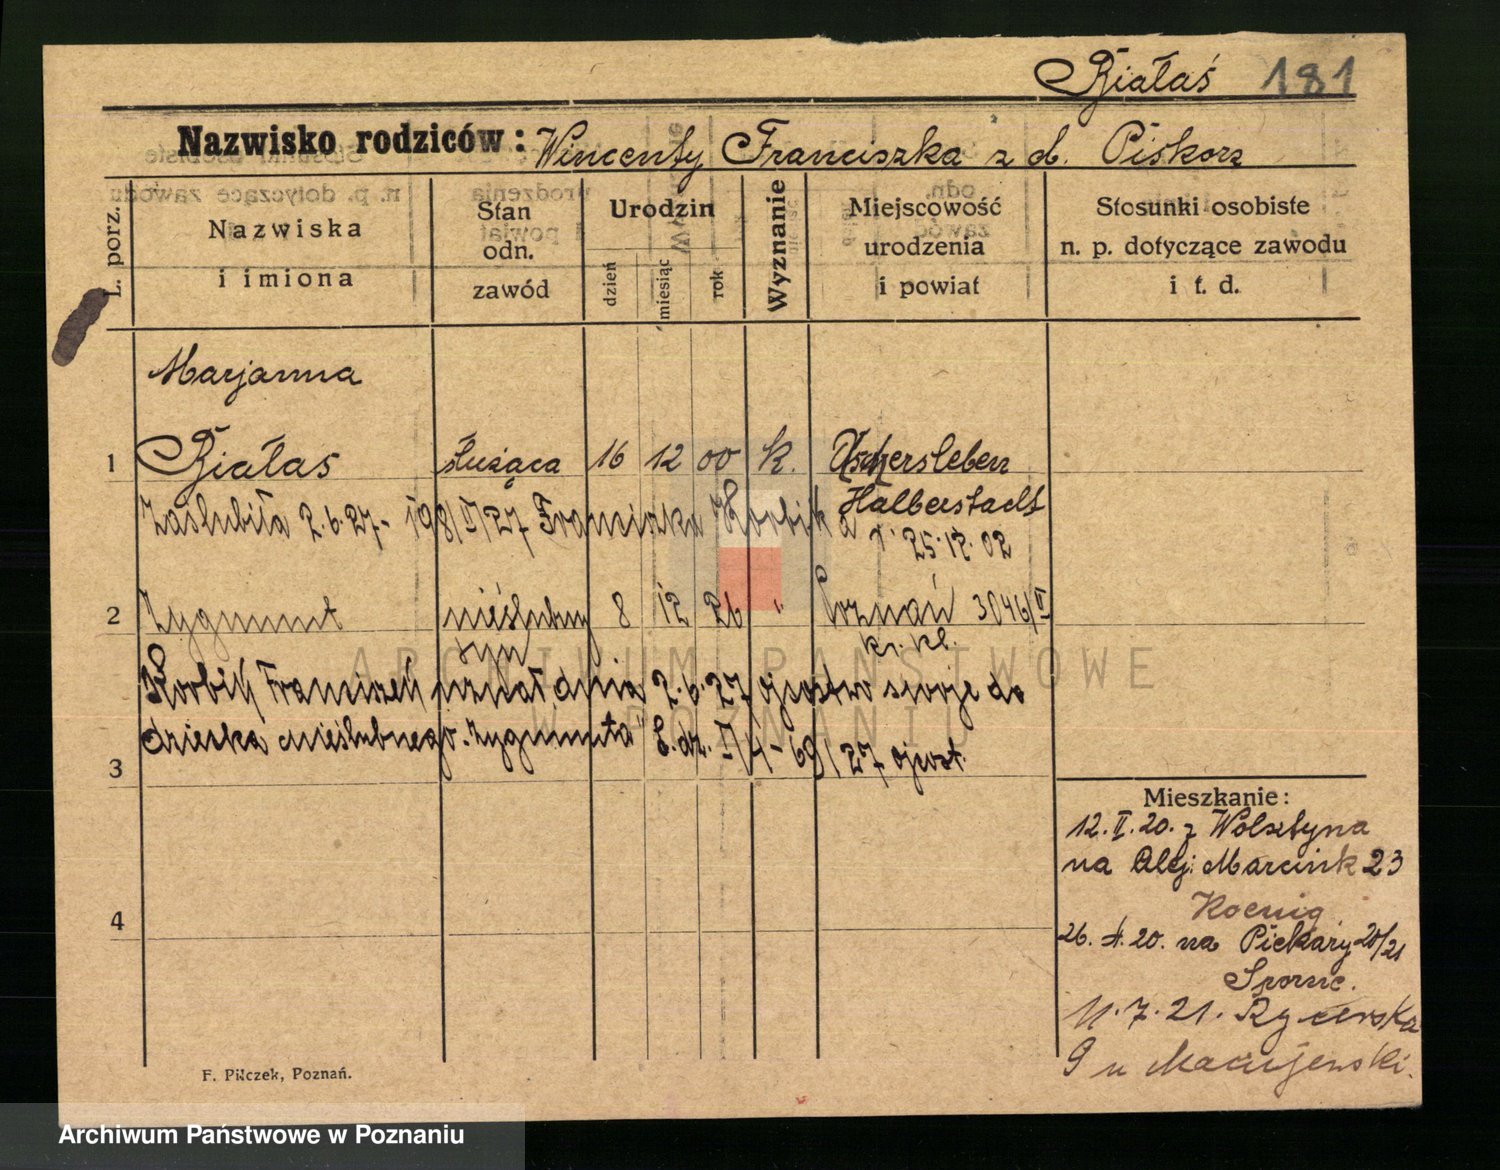 Białaś 181
Nazwisko rodziców: Wincenty Franciszka z d. Piskorz
L. porz.
Nazwiska
i imiona
Stan
odn.
zawód
Urodzin
dzień
miesiąc
rok
Wyznanie
Miejscowość
urodzenia
i powiat
Stosunki osobiste
n. p. dotyczące zawodu
i t. d.
Marjanna
1 Białas służąca 16 12 00 k. Aschersleben
Halberstadt
Zaślubiła 2.6.27 - 198/II/27 Franciszka Korbika
25.12.02
2 Zygmunt nieślubny 8 12 26 " Poznań 3046/II
syn kr. kl.
Korbik Franciszek uznał dnia 2.6.27 ojcostwo swoje do
dziecka nieślubnego "Zygmunta" L.dz. I/4-69/27 ojcost.
3
4
Mieszkanie:
12.II.20. z Wolsztyna
na Alej. Marcink 23
Koenig
26. 4. 20. na Piekary 20/21
Sporne.
11.7.21. Rycerska
9 u Maciejewski.
F. Pilczek, Poznań.
ARCHIWUM PAŃSTWOWE
W POZNANIU
Archiwum Państwowe w Poznaniu